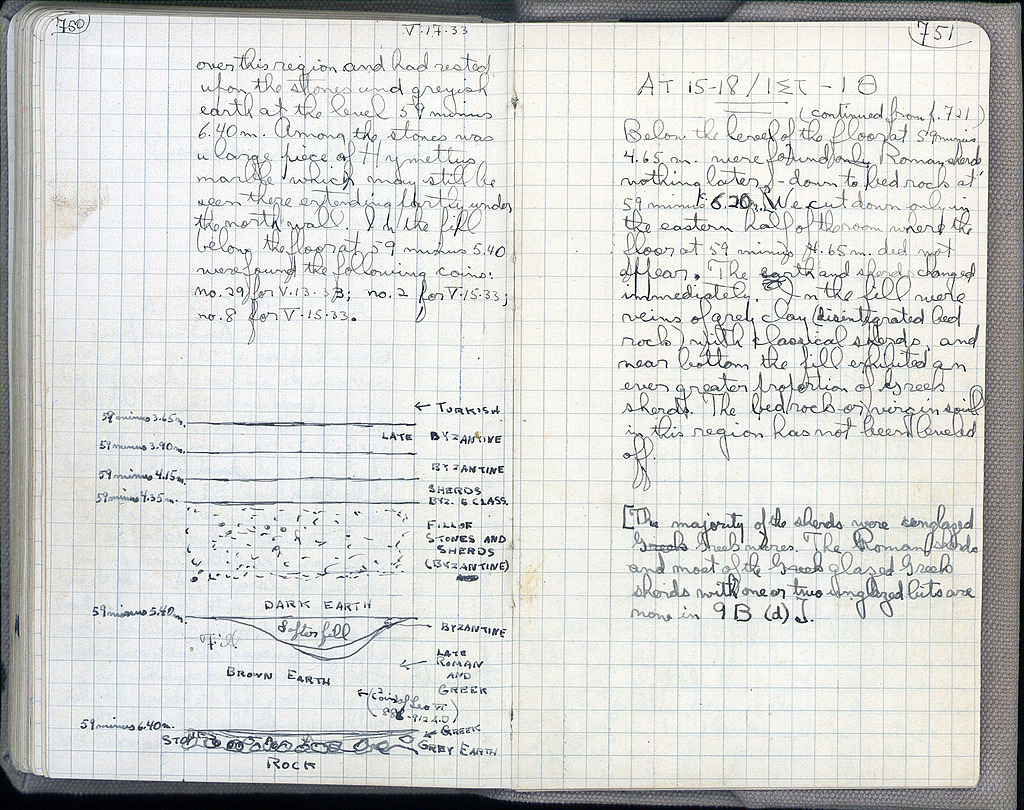 750
V·17·33
over this region and had rested
upon the stones and greyish
earth at the level 59 minus
6.40 m. Among the stones was
a large piece of Hymettus
marble which may still be
seen there extending partly under
the north wall. In the fill
below the floor at 59 minus 5.40
were found the following coins:
no. 29 for V·13·33; no. 2 for V·15·33;
no. 8 for V·15·33.
← TURKISH
59 minus 3.65 m.
LATE BYZANTINE
59 minus 3.90 m.
BYZANTINE
59 minus 4.15 m.
SHERDS
59 minus 4.35 m. BYZ. & CLASS.
FILL OF
STONES AND
SHERDS
(BYZANTINE)
DARK EARTH
59 minus 5.40 m.
Softer fill
BYZANTINE
Fill
LATE
ROMAN
AND
GREEK
BROWN EARTH
(Coin of Leo VI
-912 A.D)
59 minus 6.40 m.
GREEK
GREY EARTH
ROCK
751
AT 15-18/ΙΣΤ - ΙΘ
(continued from p. 721)
Below the level of the floor at 59 minus
4.65 m. were found only Roman sherds
nothing later, - down to bed rock at
59 minus 6.20 m. We cut down only in
the eastern half of the room where the
floor at 59 minus 4.65 m. did not
appear. The earth and sherds changed
immediately. In the fill were
veins of grey clay (disintegrated bed
rock) with classical sherds, and
near bottom the fill exhibited an
ever greater proportion of Greek
sherds. The bed rock or virgin soil
in this region has not been leveled
off.
[The majority of the sherds were unglazed
Greek Greek wares. The Roman sherds
and most of the Greek glazed Greek
sherds with one or two unglazed bits are
now in 9 B (d)].